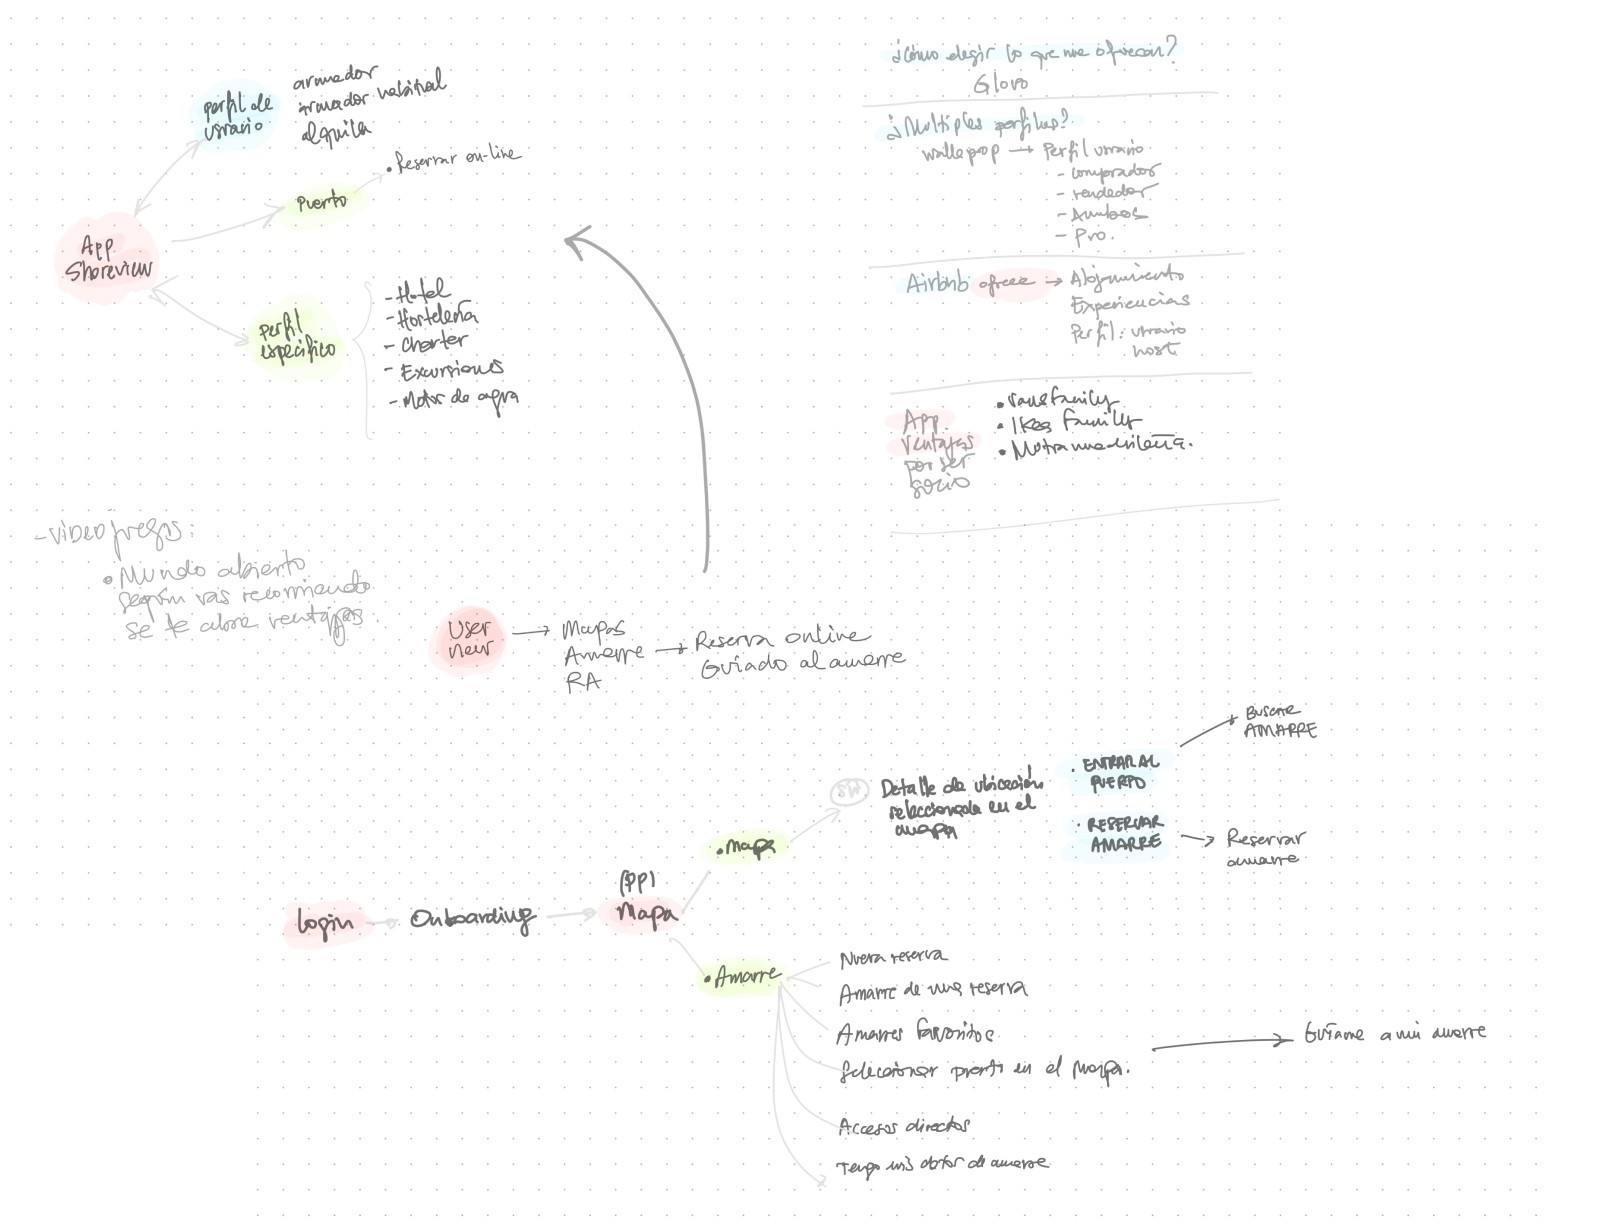 perfil de
usuario
armador
armador habitual
alquila
Puerto
• Reservar on-line
App
Shoreview
perfil
específico
- Hotel
- Hostelería
- Charter
- Excursiones
- Motor de agua
¿Cómo elegir lo que me ofrecen?
Glovo
¿Múltiples perfiles?
wallapop → Perfil usuario
- comprador
- vendedor
- Ambos
- Pro.
Airbnb ofrece → Alojamiento
Experiencias
Perfil: usuario
host
App
ventajas
por ser
socio
• vansfamily
• Ikea family
• Mutra madrileña.
- videojuegos:
• Mundo abierto
según vas recorriendo
se te abre ventajas.
User
new
Mapas
Amarre
RA
Reserva online
Guiado al amarre
Login
Onboarding
(PP)
Mapa
• Mapa
SW
Detalle de ubicación
seleccionada en el
mapa
• ENTRAR AL
PUERTO
Buscar
AMARRE
• RESERVAR
AMARRE
Reservar
amarre
• Amarre
Nueva reserva
Amarre de una reserva
Amarres favoritos
Seleccionar punto en el Mapa.
Accesos directos
Tengo mis datos de amarre
Guíame a mi amarre